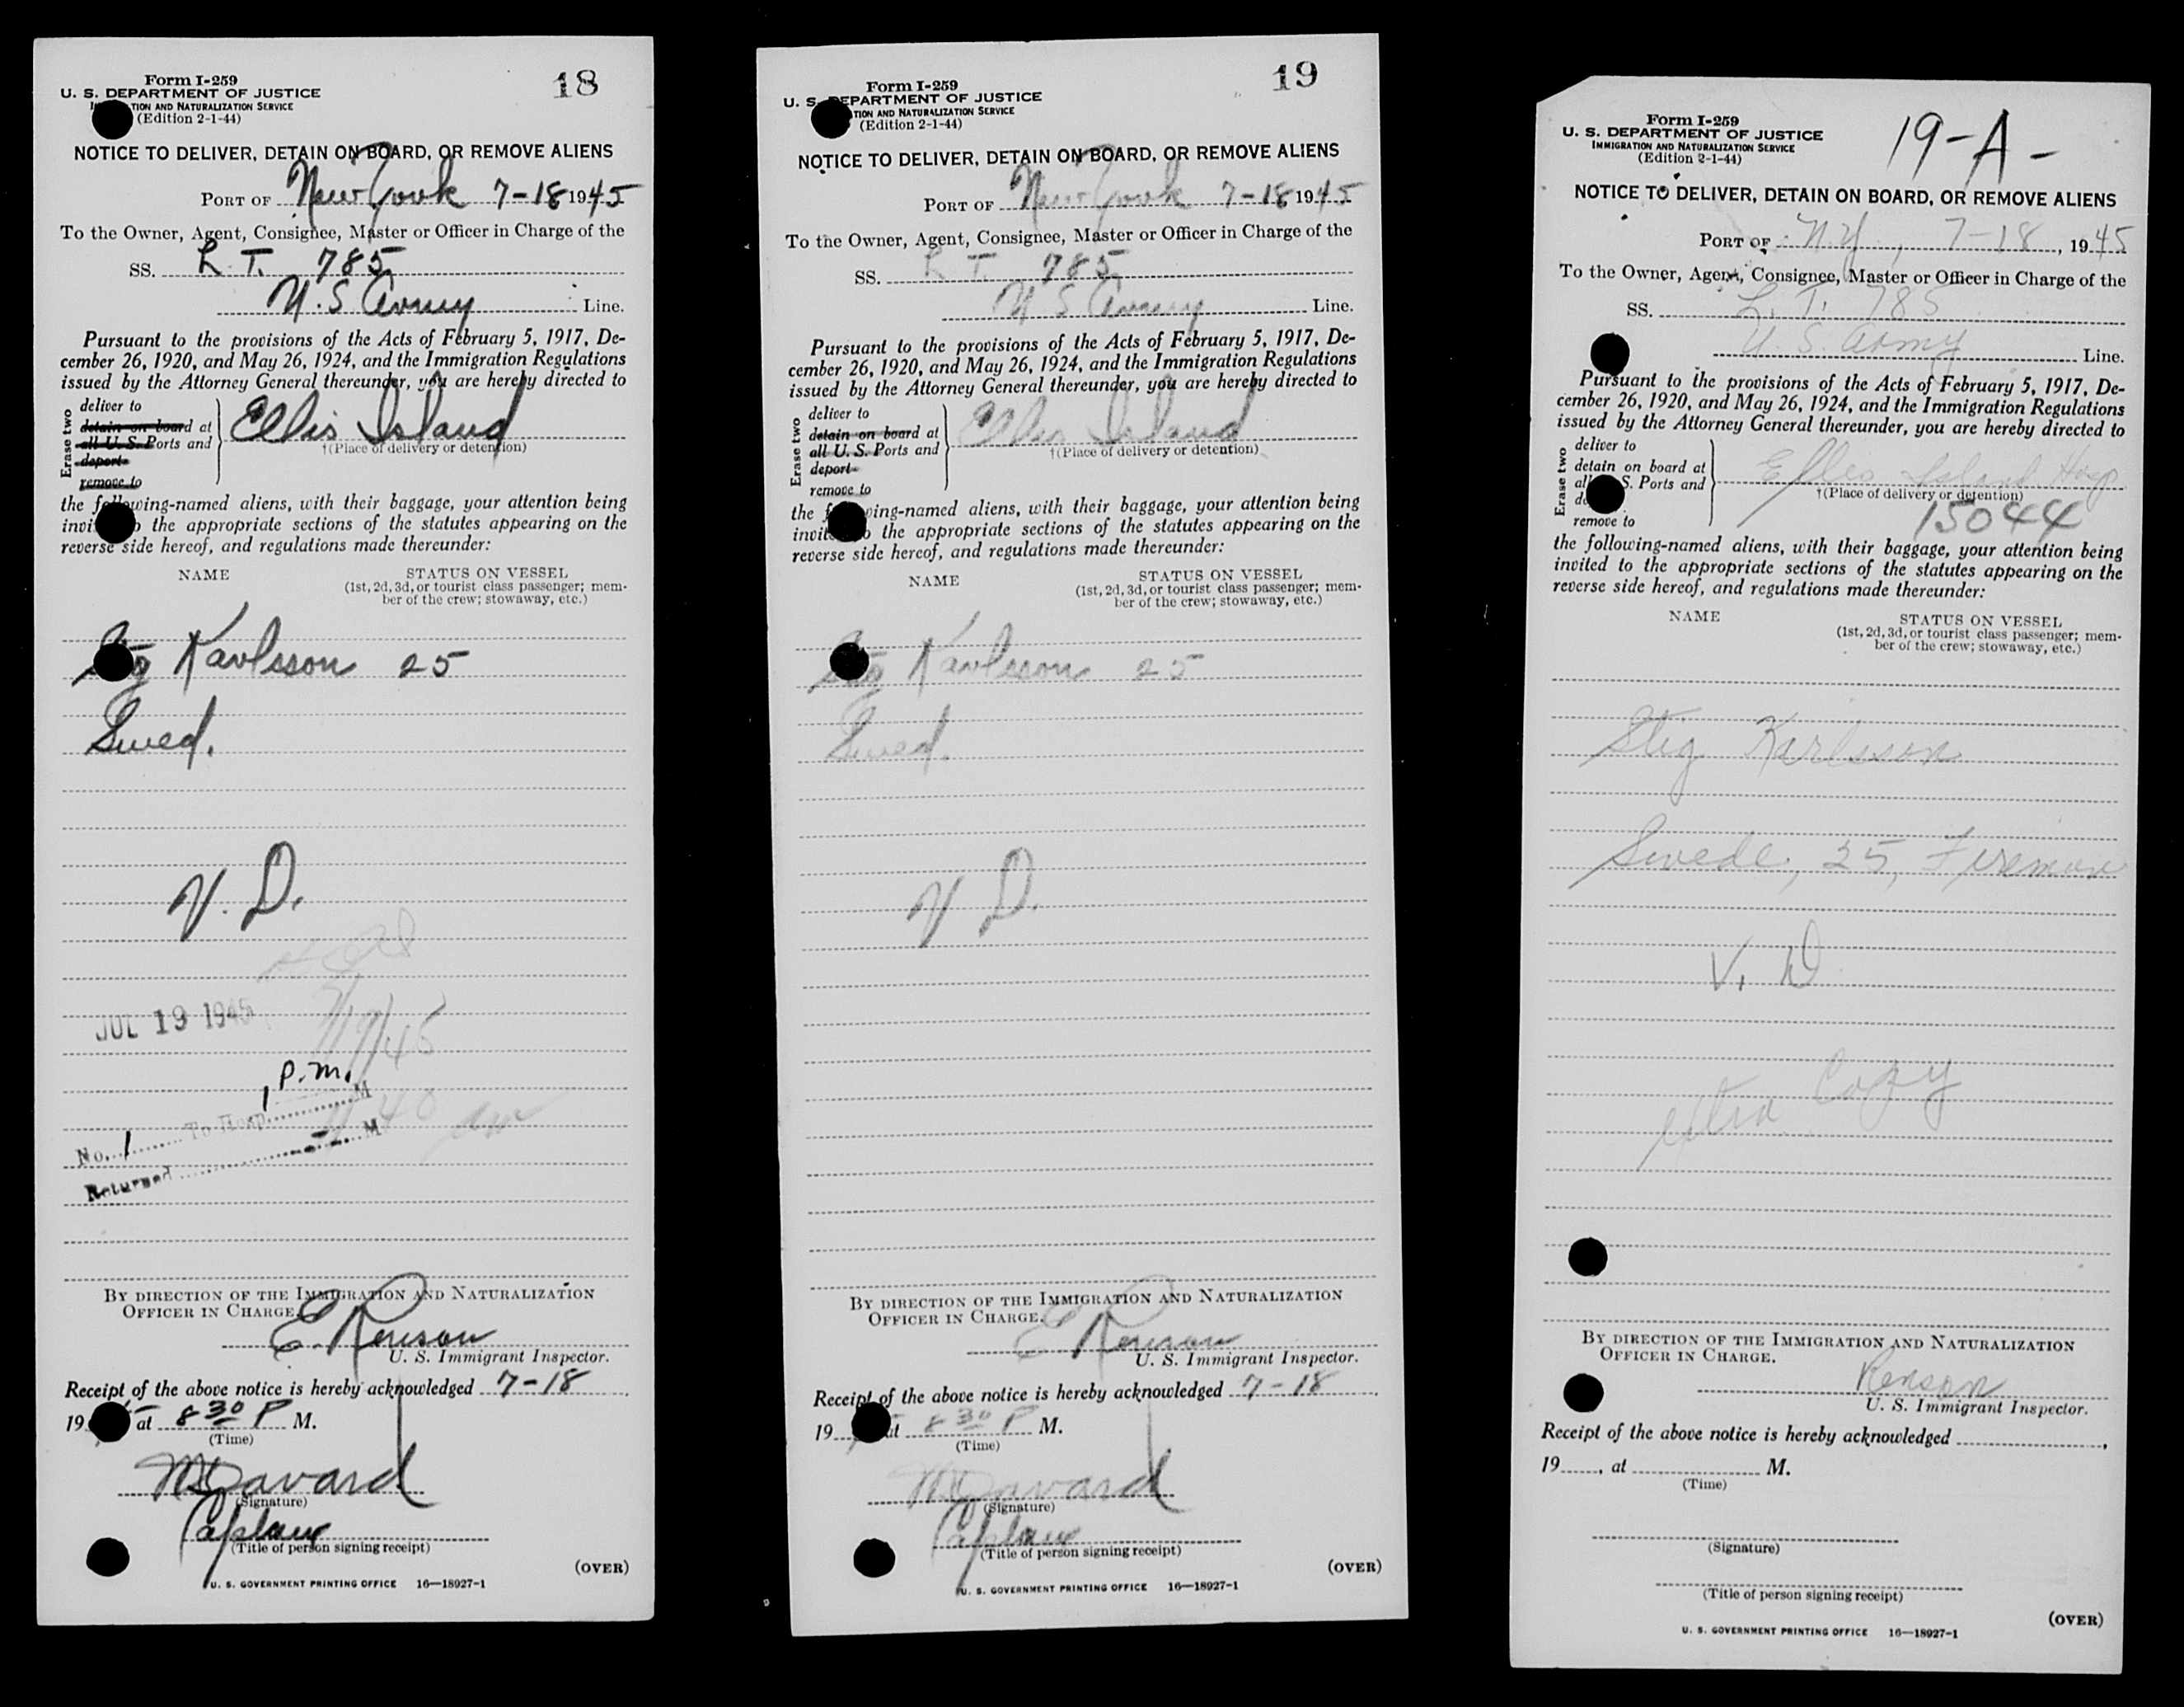 18
Form I-259
U. S. DEPARTMENT OF JUSTICE
TION AND NATURALIZATION SERVICE
(Edition 2-1-44)
NOTICE TO DELIVER, DETAIN ON BOARD, OR REMOVE ALIENS
PORT OF New York 7-18 1945
To the Owner, Agent, Consignee, Master or Officer in Charge of the
SS. L. T. 785
U. S Army Line.
Pursuant to the provisions of the Acts of February 5, 1917, De-
cember 26, 1920, and May 26, 1924, and the Immigration Regulations
issued by the Attorney General thereunder, you are hereby directed to
Erase two
deliver to
detain on board at
all U. S. Ports and
deport
remove to
Ellis Island
†(Place of delivery or detention)
the following-named aliens, with their baggage, your attention being
invited to the appropriate sections of the statutes appearing on the
reverse side hereof, and regulations made thereunder:
NAME STATUS ON VESSEL
(1st, 2d, 3d, or tourist class passenger; mem-
ber of the crew; stowaway, etc.)
Stig Karlsson 25
Swed.
V. D.
JUL 19 1945
7/19/45
1 P.M.
No. 1 To Hosp. M
40 am
Returned - M
BY DIRECTION OF THE IMMIGRATION AND NATURALIZATION
OFFICER IN CHARGE.
E. Renison
U. S. Immigrant Inspector.
Receipt of the above notice is hereby acknowledged 7-18
19 at 8 30 P M.
(Time)
(Signature)
Captain
(Title of person signing receipt)
(OVER)
U. S. GOVERNMENT PRINTING OFFICE 16—18927-1
19
Form I-259
U. S. DEPARTMENT OF JUSTICE
TION AND NATURALIZATION SERVICE
(Edition 2-1-44)
NOTICE TO DELIVER, DETAIN ON BOARD, OR REMOVE ALIENS
PORT OF New York 7-18 1945
To the Owner, Agent, Consignee, Master or Officer in Charge of the
SS. L T. 785
U S Army Line.
Pursuant to the provisions of the Acts of February 5, 1917, De-
cember 26, 1920, and May 26, 1924, and the Immigration Regulations
issued by the Attorney General thereunder, you are hereby directed to
Erase two
deliver to
detain on board at
all U. S. Ports and
deport
remove to
Ellis Island
†(Place of delivery or detention)
the following-named aliens, with their baggage, your attention being
invited to the appropriate sections of the statutes appearing on the
reverse side hereof, and regulations made thereunder:
NAME STATUS ON VESSEL
(1st, 2d, 3d, or tourist class passenger; mem-
ber of the crew; stowaway, etc.)
Stig Karlsson 25
Swed.
V D.
BY DIRECTION OF THE IMMIGRATION AND NATURALIZATION
OFFICER IN CHARGE.
E Renison
U. S. Immigrant Inspector.
Receipt of the above notice is hereby acknowledged 7-18
19 at 8 30 P M.
(Time)
(Signature)
Captain
(Title of person signing receipt)
(OVER)
U. S. GOVERNMENT PRINTING OFFICE 16—18927-1
19-A-
Form I-259
U. S. DEPARTMENT OF JUSTICE
IMMIGRATION AND NATURALIZATION SERVICE
(Edition 2-1-44)
NOTICE TO DELIVER, DETAIN ON BOARD, OR REMOVE ALIENS
PORT OF N.Y., 7-18, 1945
To the Owner, Agent, Consignee, Master or Officer in Charge of the
SS. L. T. 785
U. S. Army Line.
Pursuant to the provisions of the Acts of February 5, 1917, De-
cember 26, 1920, and May 26, 1924, and the Immigration Regulations
issued by the Attorney General thereunder, you are hereby directed to
Erase two
deliver to
detain on board at
all S. Ports and
de
remove to
Ellis Island Hosp
†(Place of delivery or detention)
15044
the following-named aliens, with their baggage, your attention being
invited to the appropriate sections of the statutes appearing on the
reverse side hereof, and regulations made thereunder:
NAME STATUS ON VESSEL
(1st, 2d, 3d, or tourist class passenger; mem-
ber of the crew; stowaway, etc.)
Stig Karlsson
Swede, 25, Fireman
V. D
extra Copy
BY DIRECTION OF THE IMMIGRATION AND NATURALIZATION
OFFICER IN CHARGE.
Renison
U. S. Immigrant Inspector.
Receipt of the above notice is hereby acknowledged
19 , at M.
(Time)
(Signature)
(Title of person signing receipt)
(OVER)
U. S. GOVERNMENT PRINTING OFFICE 16—18927-1